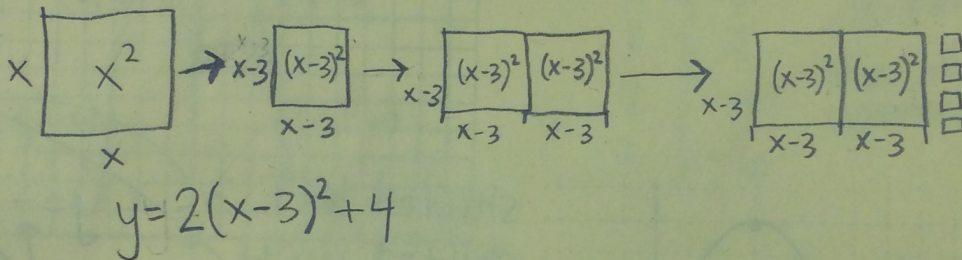 x x² x-3 (x-3)² x-3 (x-3)² (x-3)² x-3 (x-3)² (x-3)²
x x-3 x-3 x-3 x-3 x-3
y=2(x-3)²+4